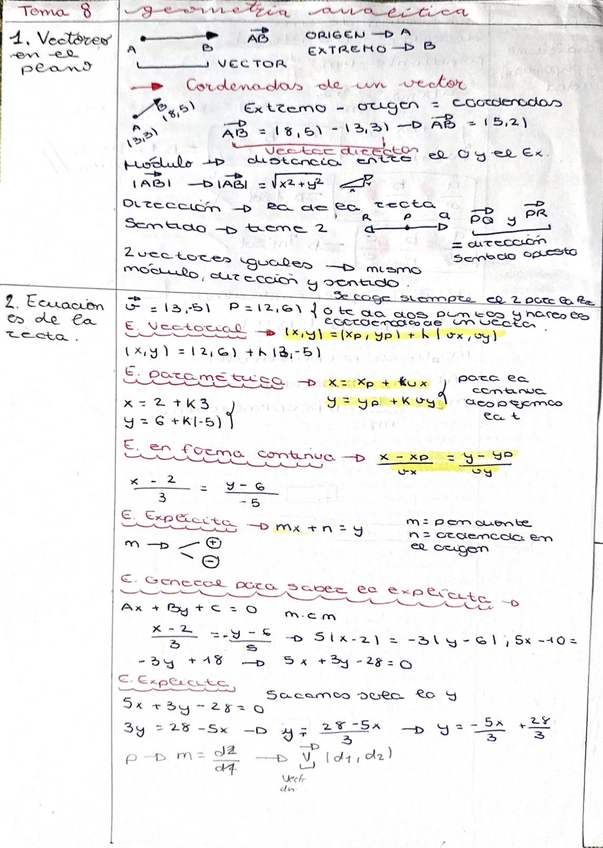 Tema 8 geometría analítica
1. Vectores en el plano
A B AB ORIGEN → A
EXTREMO → B
VECTOR
→ Cordenadas de un vector
A (3,3) B (8,5) Extremo - origen = coordenadas
AB = (8,5) - (3,3) → AB = (5,2)
vector director
Módulo → distancia entre el O y el Ex.
|AB| → |AB| = √x²+y²
Dirección → la de la recta
Sentido → tiene 2 R P Q PQ y PR
= dirección
sentido opuesto
2 vectores iguales → mismo
módulo, dirección y sentido.
2. Ecuaciones de la recta.
Se coge siempre el 2 para la
v = (3,-5) P = (2,6) { o te da dos puntos y haces
coordenadas de un vector
E. Vectorial → (x,y) = (xp, yp) + k (vx, vy)
(x,y) = (2,6) + k(3,-5)
E. paramétrica → x = xp + k vx
y = yp + k vy
para la
continua
despejamos
la t
x = 2 + k3
y = 6 + k(-5)
E. en forma continua → x - xp / vx = y - yp / vy
x - 2 / 3 = y - 6 / -5
E. Explícita → mx + n = y
m = pendiente
n = ordenada en
el origen
m → + -
E. General para saber la explícita →
Ax + By + C = 0 m.c.m
x-2 / 3 = - y-6 / 5 → 5(x-2) = -3(y-6); 5x-10=
-3y + 18 → 5x + 3y - 28 = 0
E. Explícita Sacamos sola la y
5x + 3y - 28 = 0
3y = 28 - 5x → y = 28-5x / 3 → y = -5x / 3 + 28 / 3
P → m = d2 / d1 → V (d1, d2)